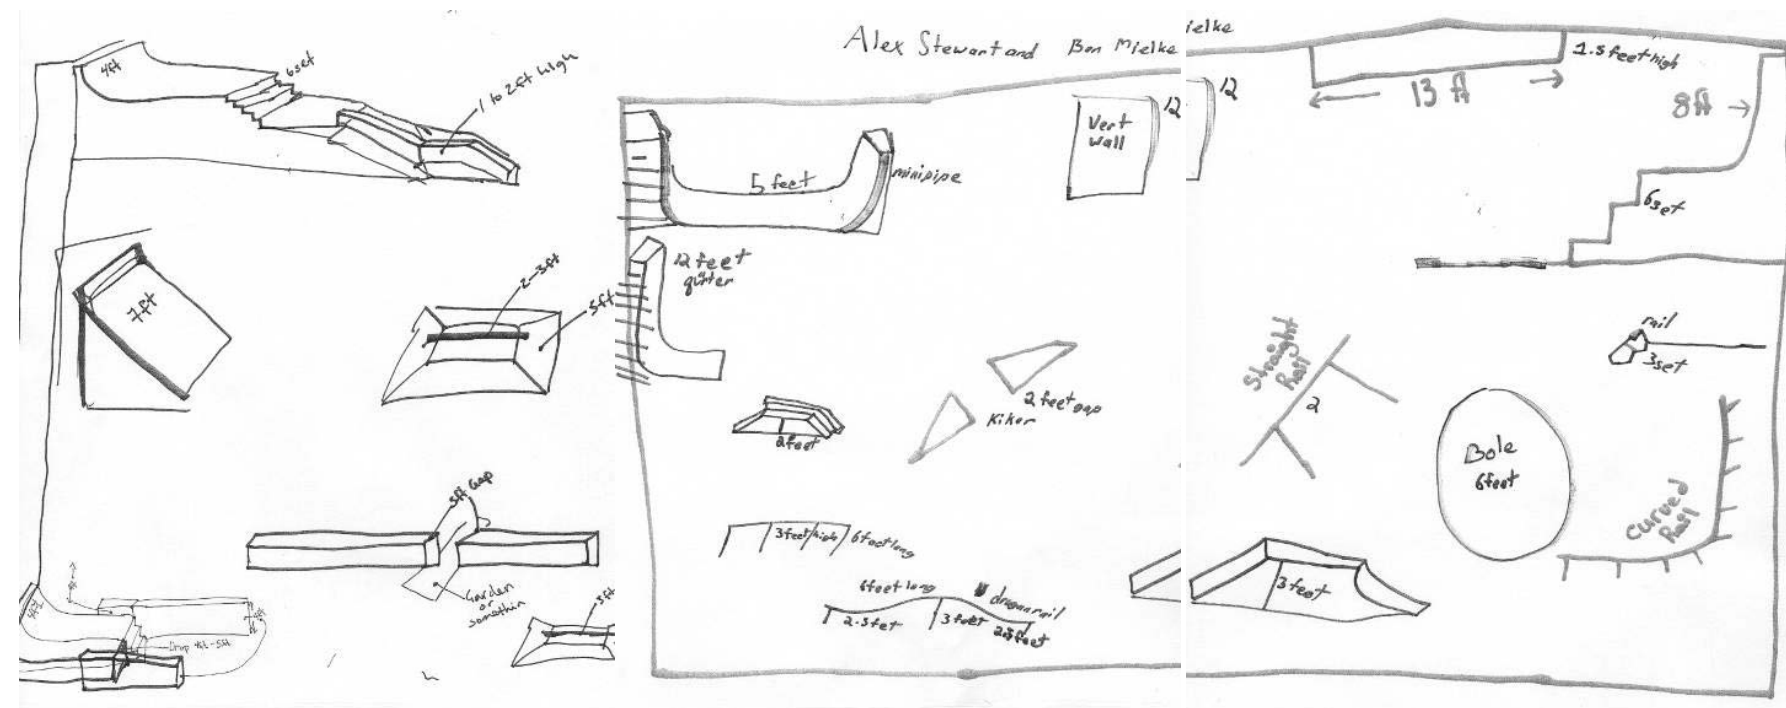 4ft
6set
1 to 2ft high
7ft
2-3ft
5ft
5ft Gap
Garden
or
somethin
3ft
Drop 4ft-5ft
Alex Stewart and Ben Mielke
5 feet
minipipe
Vert
Wall
12
12 feet
qurter
2 feet
2 feet gap
Kiker
3 feet high
6 feet long
6 feet long
dragon rail
2.5 feet
3 feet
ielke
12
13 ft
1.5 feet high
8ft
6set
Straight
Rail
2
rail
3set
Bole
6 feet
curved
Rail
3 feet